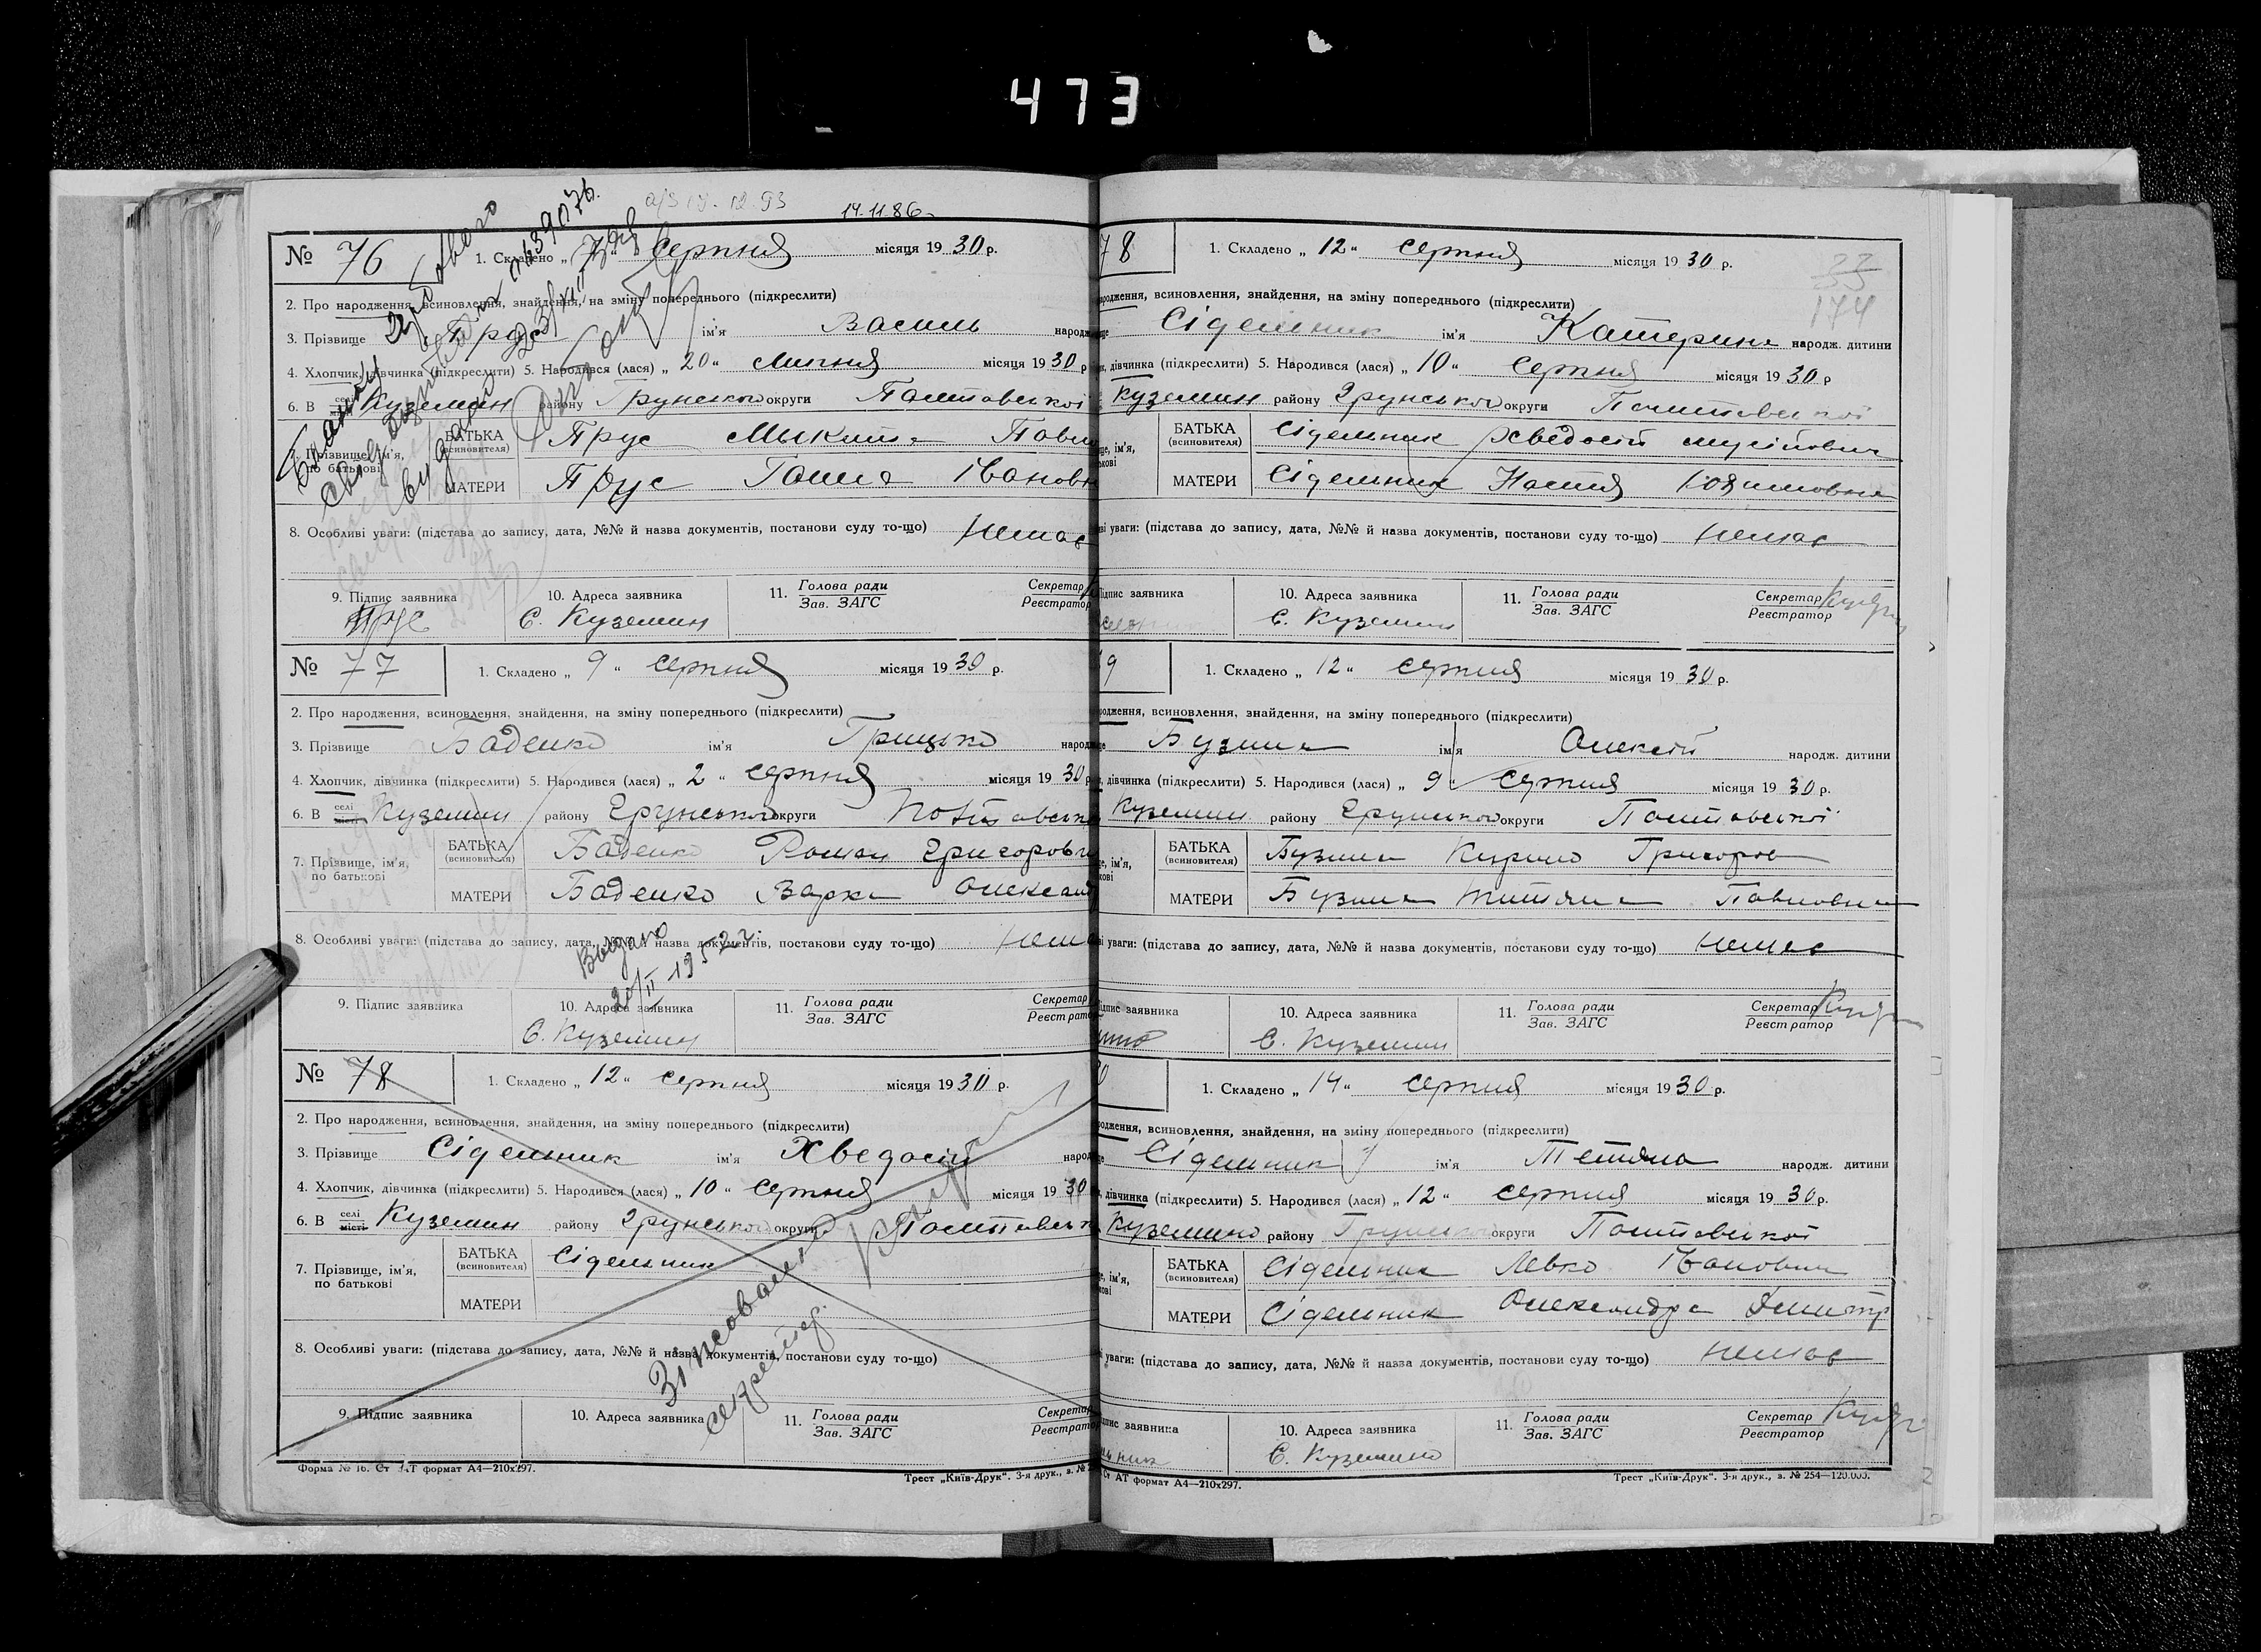 473
14.11.86
№ 76
1. Складено „ " серпня місяця 1930 р.
2. Про народження, всиновлення, знайдення, на зміну попереднього (підкреслити)
3. Прізвище Прус ім'я Василь народж
4. Хлопчик, дівчинка (підкреслити) 5. Народився (лася) „ 20 " липня місяця 1930 р
6. В селі місті Куземин району Грунського округи Полтавської
7. Прізвище, ім'я, по батькові
БАТЬКА (всиновителя) Прус Микита Павл
МАТЕРИ Прус Ганна Івановн
8. Особливі уваги: (підстава до запису, дата, №№ й назва документів, постанови суду то-що) немає
9. Підпис заявника 10. Адреса заявника 11. Голова ради Зав. ЗАГС Секретар Реєстратор
Прус С. Куземин
№ 77
1. Складено „ 9 " серпня місяця 1930 р.
2. Про народження, всиновлення, знайдення, на зміну попереднього (підкреслити)
3. Прізвище Баденко ім'я Грицько народж
4. Хлопчик, дівчинка (підкреслити) 5. Народився (лася) „ 2 " серпня місяця 1930 р
6. В селі місті Куземин району Грунського округи Полтавськ
7. Прізвище, ім'я, по батькові
БАТЬКА (всиновителя) Баденко Роман Григорович
МАТЕРИ Баденко Варка Олександ
8. Особливі уваги: (підстава до запису, дата, №№ й назва документів, постанови суду то-що) нема
Выдано 20/II-1952 г.
9. Підпис заявника 10. Адреса заявника 11. Голова ради Зав. ЗАГС Секретар Реєстратор
С. Куземин
№ 78
1. Складено „ 12 " серпня місяця 1930 р.
2. Про народження, всиновлення, знайдення, на зміну попереднього (підкреслити)
3. Прізвище Сідельник ім'я Хведосій народ
4. Хлопчик, дівчинка (підкреслити) 5. Народився (лася) „ 10 " серпня місяця 1930
6. В селі місті Куземин району Грунського округи Полтавськ
7. Прізвище, ім'я, по батькові
БАТЬКА (всиновителя) Сідельник
МАТЕРИ
Зіпсовано
секретар
8. Особливі уваги: (підстава до запису, дата, №№ й назва документів, постанови суду то-що)
9. Підпис заявника 10. Адреса заявника 11. Голова ради Зав. ЗАГС Секретар Реєстратор
Форма № 16. Ст АТ формат А4—210х297. Трест „Київ-Друк". 3-я друк., з. №
78
1. Складено „ 12 " серпня місяця 1930 р.
174
народження, всиновлення, знайдення, на зміну попереднього (підкреслити)
Сідельник ім'я Катерина народж. дитини
дівчинка (підкреслити) 5. Народився (лася) „ 10 " серпня місяця 1930 р
Куземин району Грунського округи Полтавської
БАТЬКА (всиновителя) Сідельник Хведосій Мусійович
МАТЕРИ Сідельник Настя
уваги: (підстава до запису, дата, №№ й назва документів, постанови суду то-що) немає
Підпис заявника 10. Адреса заявника 11. Голова ради Зав. ЗАГС Секретар Реєстратор
С. Куземин
9
1. Складено „ 12 " серпня місяця 1930 р.
народження, всиновлення, знайдення, на зміну попереднього (підкреслити)
Бузина ім'я Олексій народж. дитини
дівчинка (підкреслити) 5. Народився (лася) „ 9 " серпня місяця 1930 р.
Куземин району Грунського округи Полтавської
БАТЬКА (всиновителя) Бузина Кирило Григоров
МАТЕРИ Бузина Титяна Павловна
уваги: (підстава до запису, дата, №№ й назва документів, постанови суду то-що) немає
Підпис заявника 10. Адреса заявника 11. Голова ради Зав. ЗАГС Секретар Реєстратор
С. Куземин
1. Складено „ 14 " серпня місяця 1930 р.
народження, всиновлення, знайдення, на зміну попереднього (підкреслити)
Сідельник ім'я Тетяна народж. дитини
дівчинка (підкреслити) 5. Народився (лася) „ 12 " серпня місяця 1930 р.
Куземино району Грунського округи Полтавської
БАТЬКА (всиновителя) Сідельник Левко Іванович
МАТЕРИ Сідельник Олександра Дмитр
уваги: (підстава до запису, дата, №№ й назва документів, постанови суду то-що) немає
Підпис заявника 10. Адреса заявника 11. Голова ради Зав. ЗАГС Секретар Реєстратор
С. Куземино
Ст АТ формат А4—210х297. Трест „Київ-Друк". 3-я друк., з. № 254—120.000.